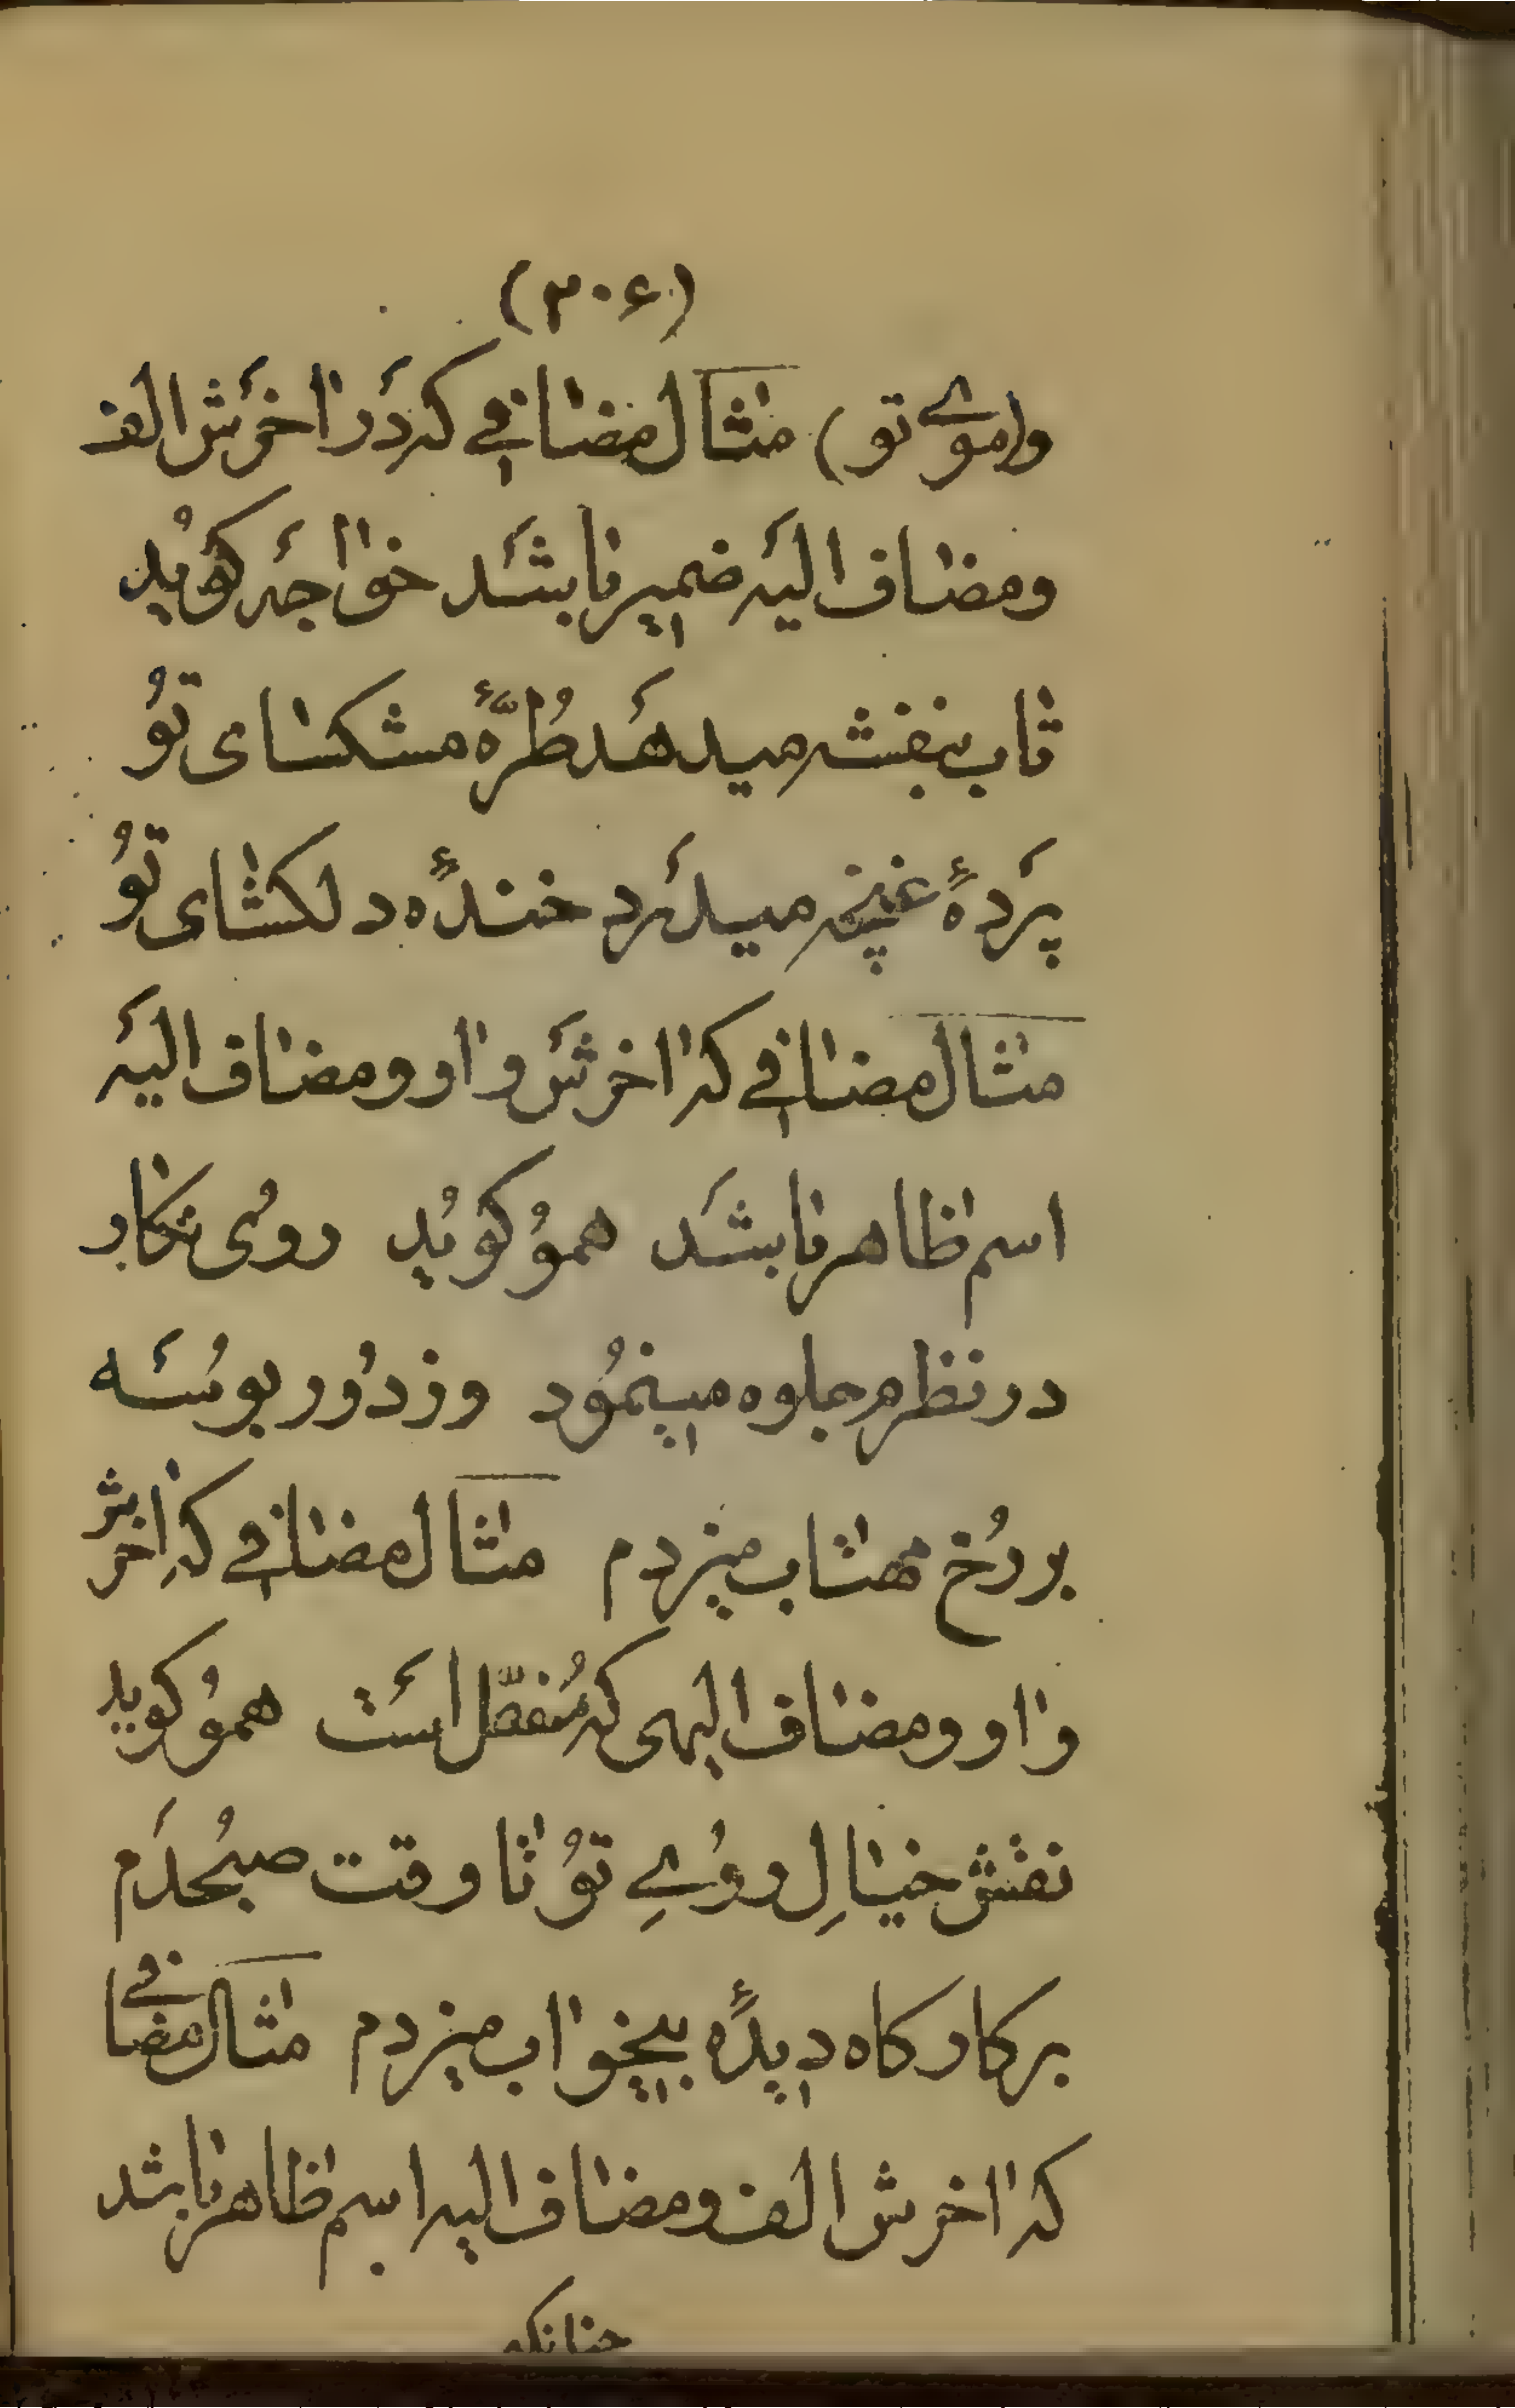 (۳۰۴)
و(موے تو) مثال مضافے که دَر اخَرش الف
ومضاف الیَه ضمیر باشَد خواجَه کوُید
تاب بنفشه میدهَد طُرّهٔ مشکسای توُ
پَردهٔ غنچه میدَرد خندهٔ دلکشای توُ
مثال مضافے که اخرشَ واو ومضاف الیَه
اسم ظاهر باشَد هموُ کوُید روُی نکار
در نظرم جلوه مینمُود وز دُور بوسَه
بر رُخ مهتاب میزدم مثال مضافے که اخرش
واو ومضاف الیهی که مُنفصّل اسَت هموُ کوید
نقش خیالِ روُےِ توُ تا وقت صبُحدَم
بر کارکاه دیدهٔ بیخواب میزدم مثال مضافے
که اخرش الف ومضاف الیه اسم ظاهر باشد
چنانکه